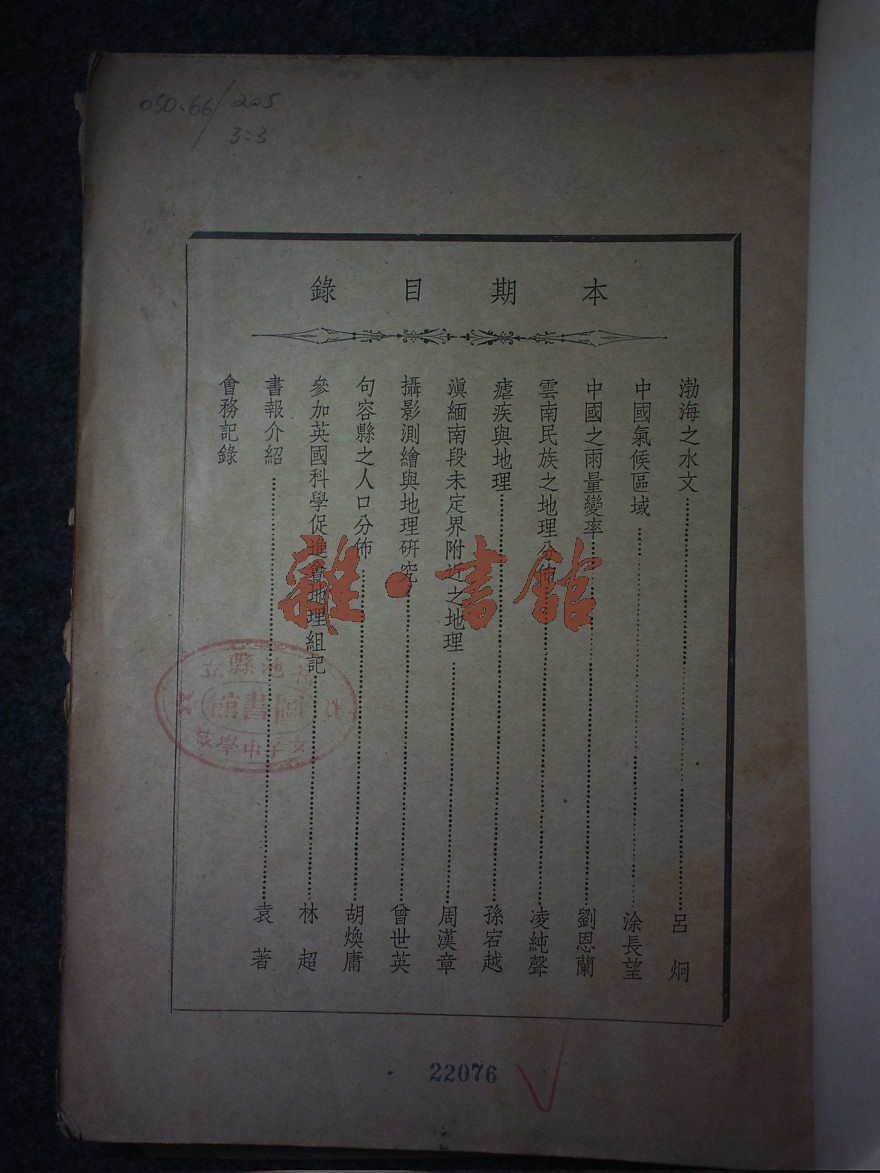 050.66/205
3=3
本期目錄
渤海之水文……呂炯
中國氣候區域……涂長望
中國之雨量變率……劉恩蘭
雲南民族之地理分佈……凌純聲
瘧疾與地理……孫宕越
滇緬南段未定界附近之地理……周漢章
攝影測繪與地理研究……曾世英
句容縣之人口分佈……胡煥庸
參加英國科學促進會地理組記……林超
書報介紹……袁著
會務記錄
雜·書館
縣立
圖書館
女子中學校
22076